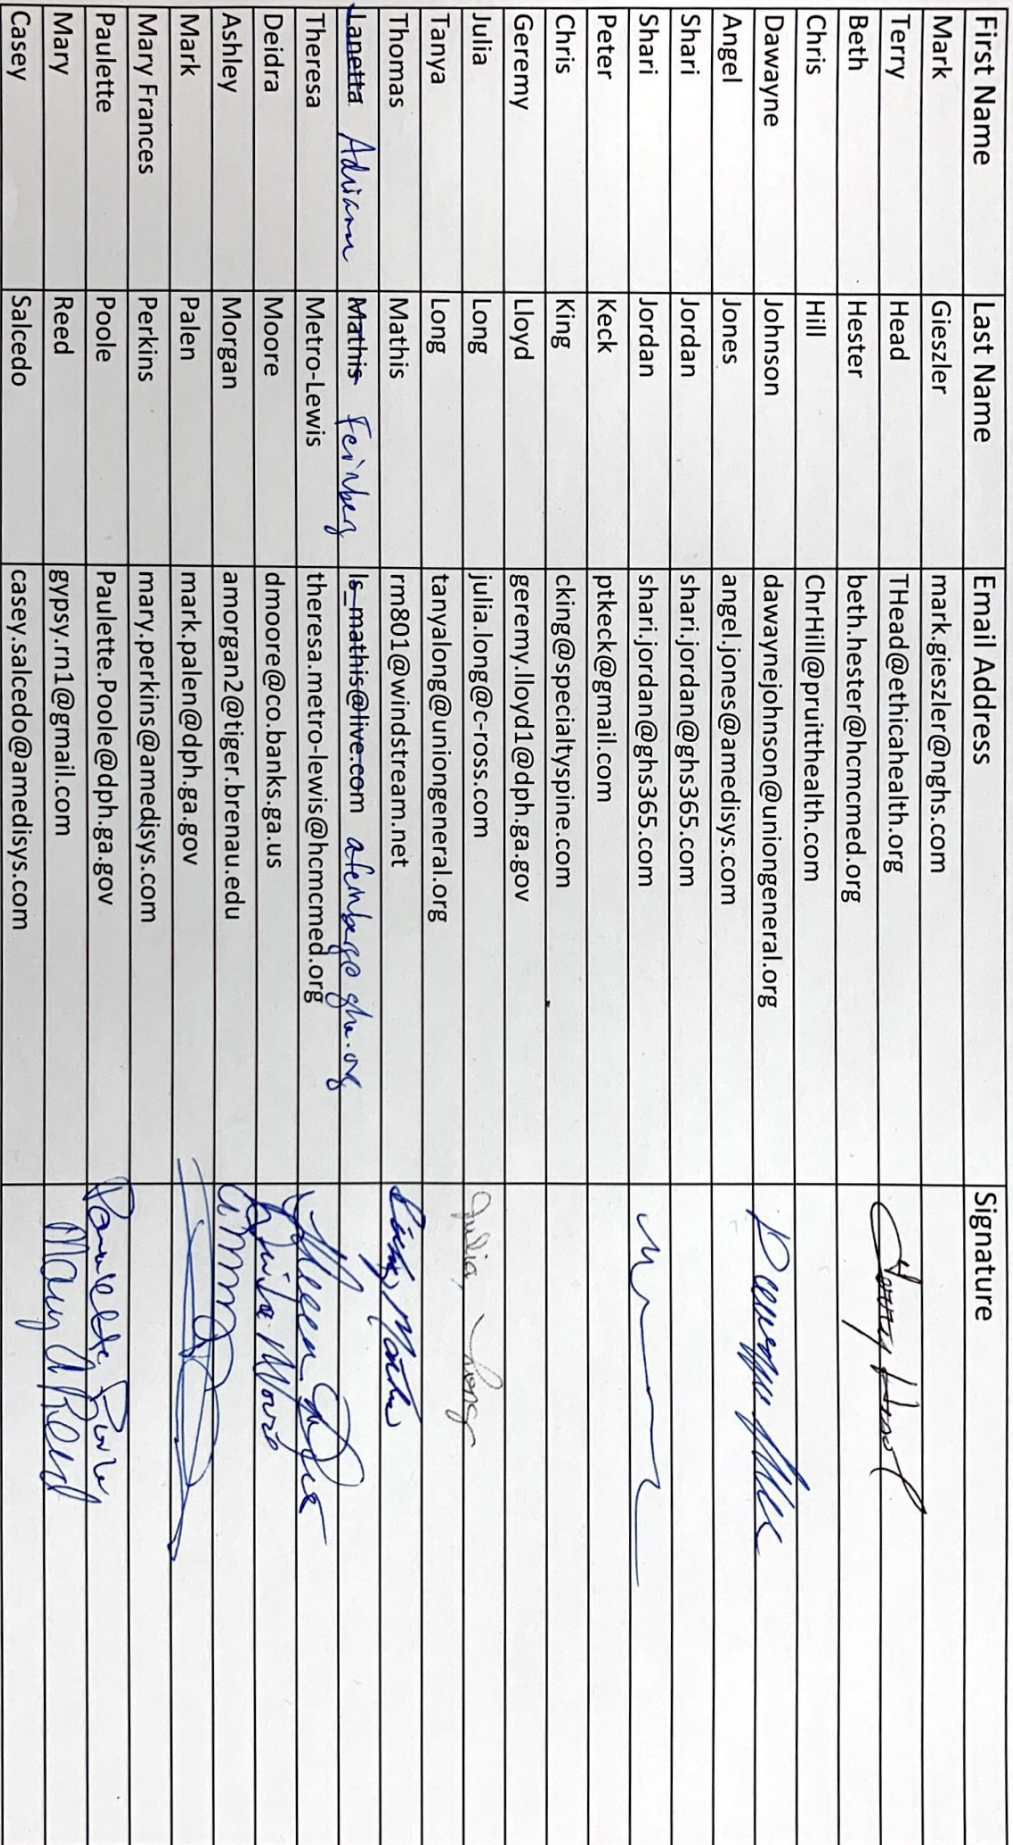 First Name Last Name Email Address Signature
Mark Gieszler mark.gieszler@nghs.com
Terry Head THead@ethicahealth.org Terry Head
Beth Hester beth.hester@hcmcmed.org
Chris Hill ChrHill@pruitthealth.com
Dawayne Johnson dawaynejohnson@uniongeneral.org
Angel Jones angel.jones@amedisys.com
Shari Jordan shari.jordan@ghs365.com
Shari Jordan shari.jordan@ghs365.com
Peter Keck ptkeck@gmail.com
Chris King cking@specialtyspine.com
Geremy Lloyd geremy.lloyd1@dph.ga.gov
Julia Long julia.long@c-ross.com Julia Long
Tanya Long tanyalong@uniongeneral.org
Thomas Mathis rm801@windstream.net
Lanetta Mathis Feinberg ls_mathis@live.com
Theresa Metro-Lewis theresa.metro-lewis@hcmcmed.org
Deidra Moore dmoore@co.banks.ga.us
Ashley Morgan amorgan2@tiger.brenau.edu
Mark Palen mark.palen@dph.ga.gov
Mary Frances Perkins mary.perkins@amedisys.com
Paulette Poole Paulette.Poole@dph.ga.gov Paulette Poole
Mary Reed gypsy.rn1@gmail.com Mary A Reed
Casey Salcedo casey.salcedo@amedisys.com